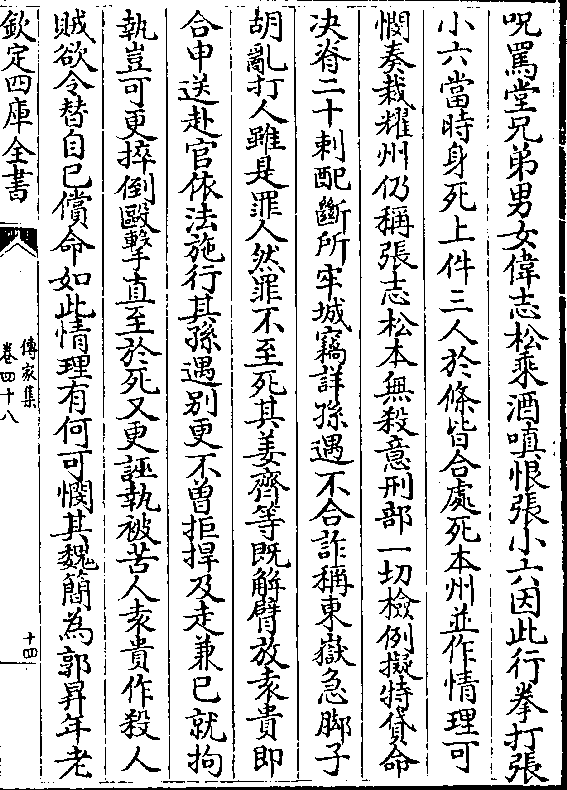 呪罵堂兄弟男女偉志松乘酒嗔恨張小六因此行拳打張
小六當時身死上件三人於條皆合處死本州並作情理可
憫奏裁耀州仍稱張志松本無殺意刑部一切檢例擬特貸命
决脊二十刺配斷所牢城竊詳孫遇不合詐稱東嶽急脚子
胡亂打人雖是罪人然罪不至死其姜齊等既解臂放袁貴即
合申送赴官依法施行其孫遇別更不曾拒捍及走兼已就拘
執豈可更捽倒毆擊直至於死又更誣執被苦人袁貴作殺人
賊欲令替自已償命如此情理有何可憫其魏簡為郭昇年老
欽定四庫全書
傳家集
卷四十八
十四